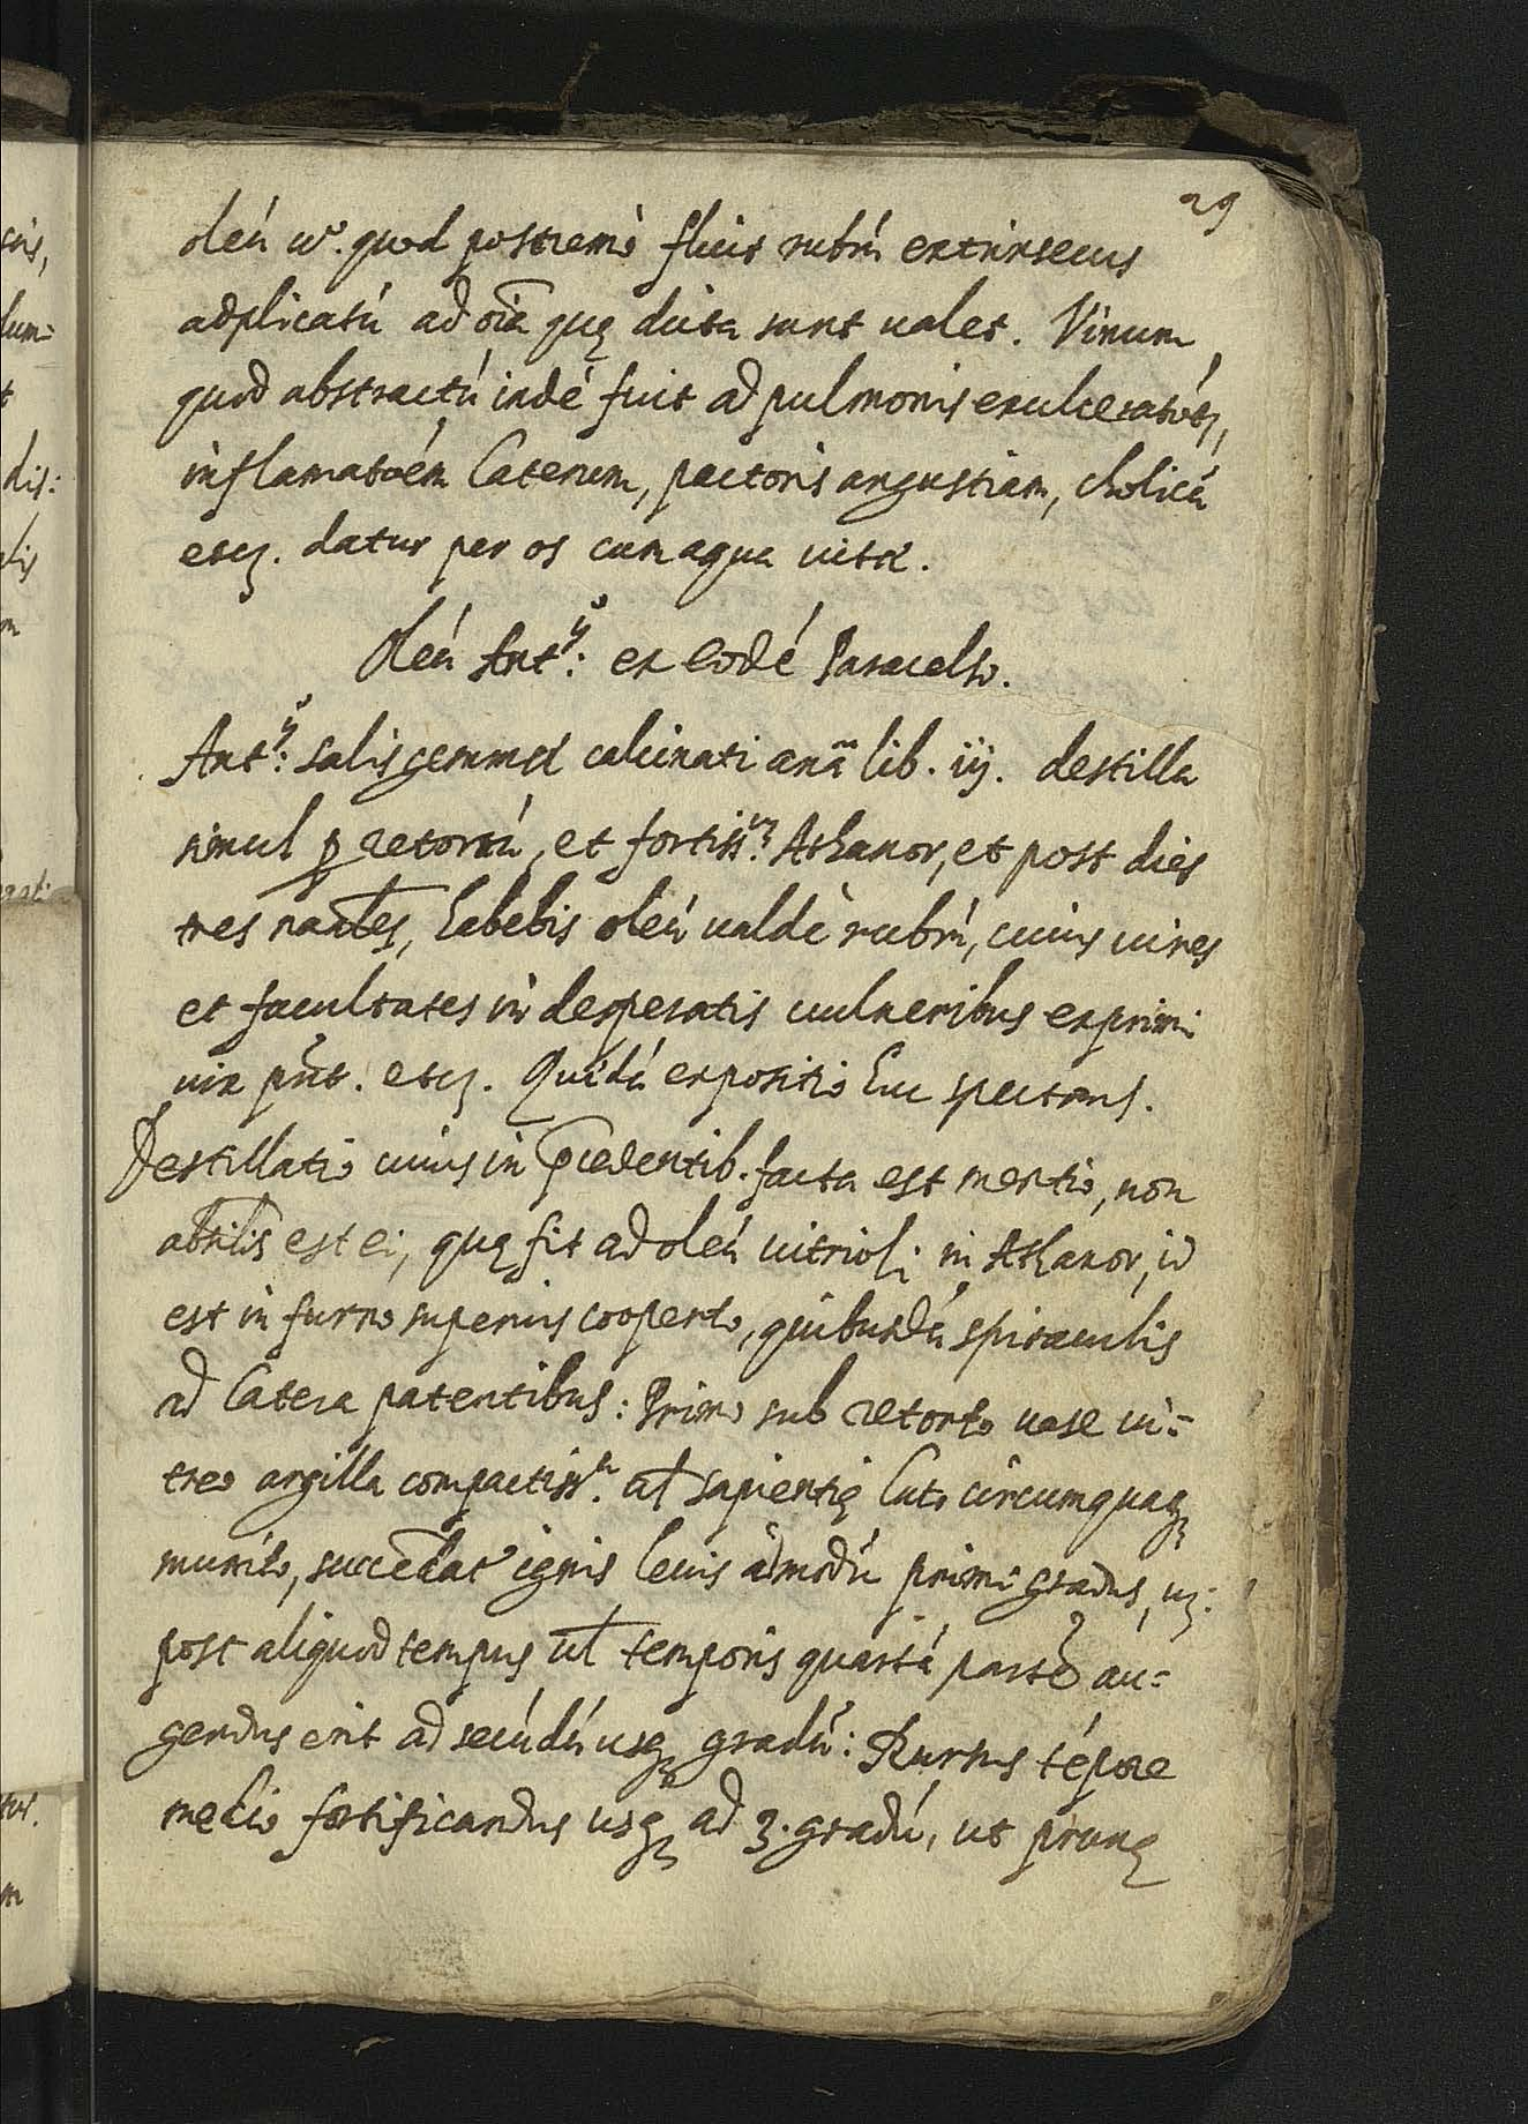 29
oleú v°. quod postremò fluit rubrú extrinsecus
adplicatú ad oīa quę dicta sunt ualet. Vinum
quod abstractú indé fuit ad pulmonis
inflamatoém laterum, pectoris angustiam, cholicá
etcę. datur per os cum aqua uitæ.
Oleú Antij: ex eodé Paracelso.
Antij: salis gemmæ calcinati anā lib. iij. destilla
simul ꝑ retortú, et fortiss. Athanor, et post dies
tres nāales, habebis oleú ualdè rubrú, cuius uires
et facultates in desperatis uulneribus exprimi
uix pñt. etcę. Quidá expositio huc spectans.
Destillatio cuius in p̄cedentib. facta est mentio, non
absīlis est ei, quę fit ad oleú uitrioli in Athanor, id
est in furno superius cooperto, quibusdá spiraculis
ad latera patentibus: Primo sub retorto uase ui=
treo argilla compactiss. at sapientię luto circumquaqꝫ
munito, succedat ignis leuis admodú primi gradus,
post aliquod tempus ul temporis quartá parté au=
gendus erit ad secúdú usqꝫ gradú: Rursus tépore
medio fortificandus usqꝫ ad 3. gradú, ut prunę